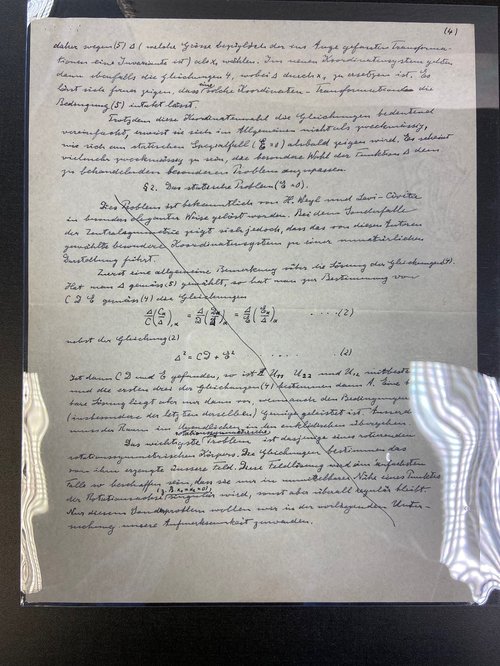 (4)
daher wegen (5) Δ (welche Grösse bezüglich der ins Auge gefassten Transforma-
tionen eine Invariante ist) als x₁ wählen. Im neuen Koordinatensystem gelten
dann ebenfalls die Gleichungen 4, wobei Δ durch x₁ zu ersetzen ist. Es
lässt sich ferner zeigen, dass solche Koordinaten-Transformationen die
Bedingung (5) intakt lässt.
Trotzdem diese Koordinatenwahl die Gleichungen bedeutend
vereinfacht, erweist sie sich im Allgemeinen nicht als zweckmässig,
wie sich am statischen Spezialfall (E = 0) alsbald zeigen wird. Es scheint
vielmehr zweckmässig zu sein, die besondere Wahl der Funktion Δ dem
zu behandelnden besonderen Problem anzupassen.
§ 2. Das statische Problem (E = 0).
Dies Problem ist bekanntlich von H. Weyl und Levi-Cività
in besonders eleganter Weise gelöst worden. Bei dem Sonderfalle
der Zentralsymmetrie zeigt sich jedoch, dass das von diesen Autoren
gewählte besondere Koordinatensystem zu einer unnatürlichen
Darstellung führt.
Zuerst eine allgemeine Bemerkung über die Lösung der Gleichungen (4).
Hat man Δ gemäss (5) gewählt, so hat man zur Bestimmung von
C D E gemäss (4) die Gleichungen
nebst der Gleichung (2)
Δ² = CD + E² . . . . . (2)
Ist dann C D und E gefunden, so ist
und die ersten drei der Gleichungen (4) bestimmen dann A. Eine
bare Lösung liegt aber nur dann vor, wenn auch den Bedingungen
(insbesondere der letzten derselben) Genüge geleistet ist. Ausserdem
muss der Raum im Unendlichen in den euklidischen übergehen.
rotationssymmetrische
Das wichtigste Problem ist dasjenige eines rotierenden
rotationssymmetrischen Körpers. Die Gleichungen bestimmen das
von ihm erzeugte äussere Feld. Diese Feldlösung wird im einfachsten
Falle so beschaffen sein, dass sie nur in unmittelbarer Nähe eines Punktes
der Rotationsachse singulär wird, sonst aber überall regulär bleibt.
Nur diesem Sonderproblem wollen wir in der vorliegenden Unter-
suchung unsere Aufmerksamkeit zuwenden.